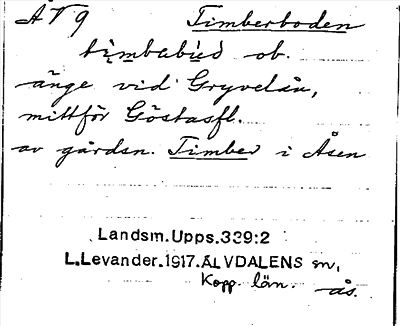 ÄV9 Timberboden
timbəbúd ob.
änge vid Gryvelån,
mittför Göstasfl.
av gårdsn. Timber i Åsen
Landsm.Upps.339:2
L.Levander.1917.ÄLVDALENS sn,
Kopp. län. ås.